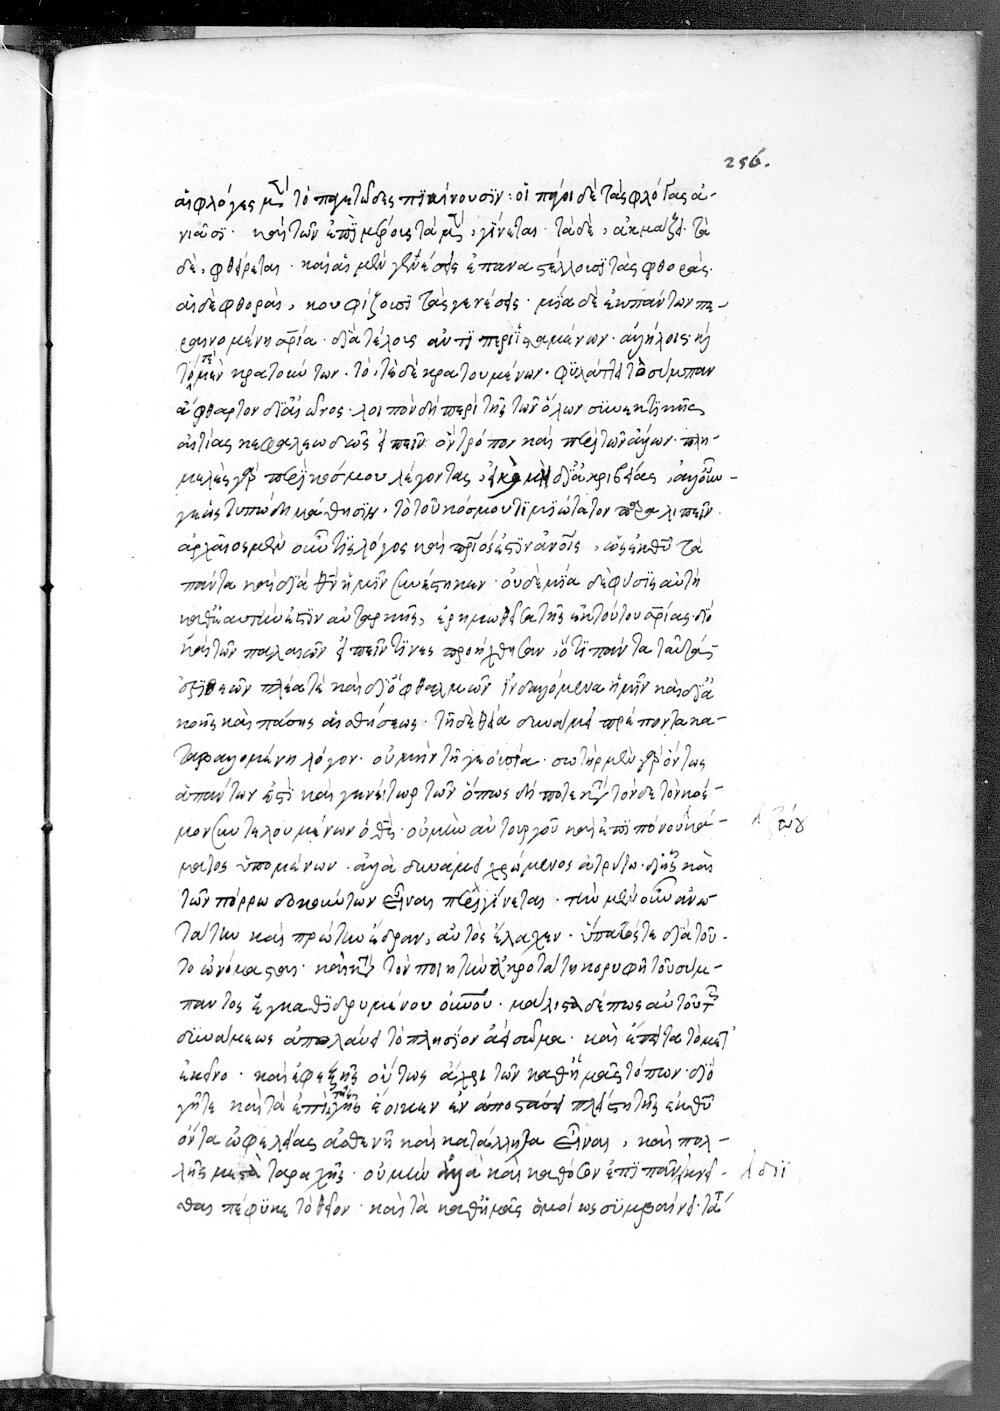 256.
αἱ φλόγες μ τὸ πηγετῶδες πϊαίνουσϊν· οἱ πάγοι δὲ τὰς φλόγας ἀ-
νιᾶσϊ· καὶ τῶν ἐπὶ μέρους τὰ μ, γίνεται· τὰ δὲ, ἀκμάζει· τὰ
δὲ, φθείρεται· καὶ αἱ μὲν γενέσεις ἐπαναστέλλουσϊ τὰς φθοράς·
αἱ δὲ φθοραὶ, κουφίζουσϊ τὰς γενέσεις· μία δὲ ἐκ πάντων πε-
ραινομένη σρία· διὰ τέλους ἀντιπεριϊσταμένων ἀλλήλοις καὶ
τοτὲ μὲν κρατούντων· τοτὲ δὲ κρατουμένων· φυλάττει τὸ σύμπαν
ἄφθαρτον δϊ αἰῶνος· λοιπὸν δὴ περὶ τῆς τῶν ὅλων συνεκτικῆς
αἰτίας κεφαλαιωδῶς εἰπεῖν ὃν τρόπον καὶ περὶ τῶν ἄλλων· πλη-
μελὲς γὰρ περὶ κόσμου λέγοντας, εἰ καὶ μὴ δϊ ἀκριβείας, ἀλλ' οὖν
γε εἰς τυπώδη μάθησϊν, τὸ τοῦ κόσμου τιμιώτατον παραλιπεῖν·
ἀρχαῖος μὲν οὖν τις λόγος καὶ πριός ἐστϊν ἀνοῖς, ὡς ἐκ θῦ τὰ
πάντα καὶ διὰ θν ἡμῖν συνέστηκεν· οὐδεμία δὲ φύσϊς αὐτὴ
καθ' ἑαυτήν ἐστϊν αὐτάρκης, ἐρημωθεῖσα τῆς ἐκ τούτου σρίας· διὸ
καὶ τῶν παλαιῶν εἰπεῖν τινες προήχθησαν, ὅτι πάντα ταῦτά
ἐστϊ θεῶν πλέα τὰ καὶ δϊ ὀφθαλμῶν ἰνδαλλόμενα ἡμῖν καὶ δϊ ἀ-
κοῆς καὶ πάσης αἰσθήσεως· τῇ δὲ θεία δυνάμει πρέποντα κα-
ταβαλλομένη λόγον· οὐ μὴν τῇ γε οὐσία· σωτὴρ μὲν γὰρ ὄντως
ἁπάντων ἐστὶ καὶ γενέτωρ τῶν ὁπωσδήποτε κατὰ τόνδε τὸν κόσ-
μον συντελουμένων ὁ θς· οὐ μὴν αὐτουργοῦ καὶ ἐπιπόνου κά-
ματος ὑπομένων· ἀλλὰ δυνάμει χρώμενος ἀτρύτω· δι' ἧς καὶ
τῶν πόρρω δοκούντων εἶναι περιγίνεται· τὴν μὲν οὖν ἀνω-
τάτω καὶ πρώτην ἕδραν, αὐτὸς ἔλαχεν· ὕπατός τε διὰ τοῦ-
το ὠνόμασται· καὶ κατὰ τὸν ποιητὴν ἀκροτάτη κορυφῇ τοῦ σύμ-
παντος ἐγκαθϊδρυμένου οὐνοῦ· μάλιστα δέ πως αὐτοῦ τῆς
δυνάμεως ἀπολαύει τὸ πλησίον αὐτοῦ σῶμα· καὶ ἔπειτα τὸ μετ'
ἐκεῖνο· καὶ ἐφεξῆς οὕτως ἄχρι τῶν καθ' ἡμᾶς τόπων· διὸ
γῆ τε καὶ τὰ ἐπὶ τῆς γῆς ἔοικεν ἐν ἀποστάσει πλείστη τῆς ἐκ θῦ
ὄντα ὠφελείας ἀσθενῆ καὶ κατάλληλα εἶναι, καὶ πολ-
λῆς μετὰ ταραχῆς· οὐ μὴν ἀλλὰ καὶ καθόσον ἐπὶ πᾶν -
θαι πέφυκε τὸ θεῖον· καὶ τὰ καθ' ἡμᾶς ὁμοίως συμβαίνει· τά